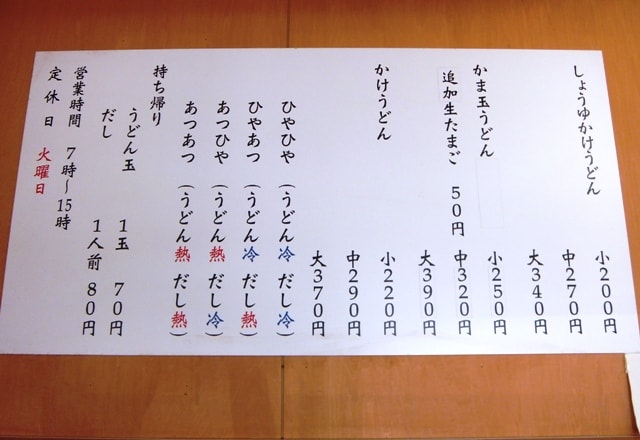 しょうゆかけうどん
小200円
中270円
大340円
かま玉うどん
小250円
追加生たまご 50円
中320円
大390円
かけうどん
小220円
中290円
大370円
ひやひや (うどん冷 だし冷)
ひやあつ (うどん冷 だし熱)
あつひや (うどん熱 だし冷)
あつあつ (うどん熱 だし熱)
持ち帰り
うどん玉 1玉 70円
だし 1人前 80円
営業時間 7時~15時
定休日 火曜日